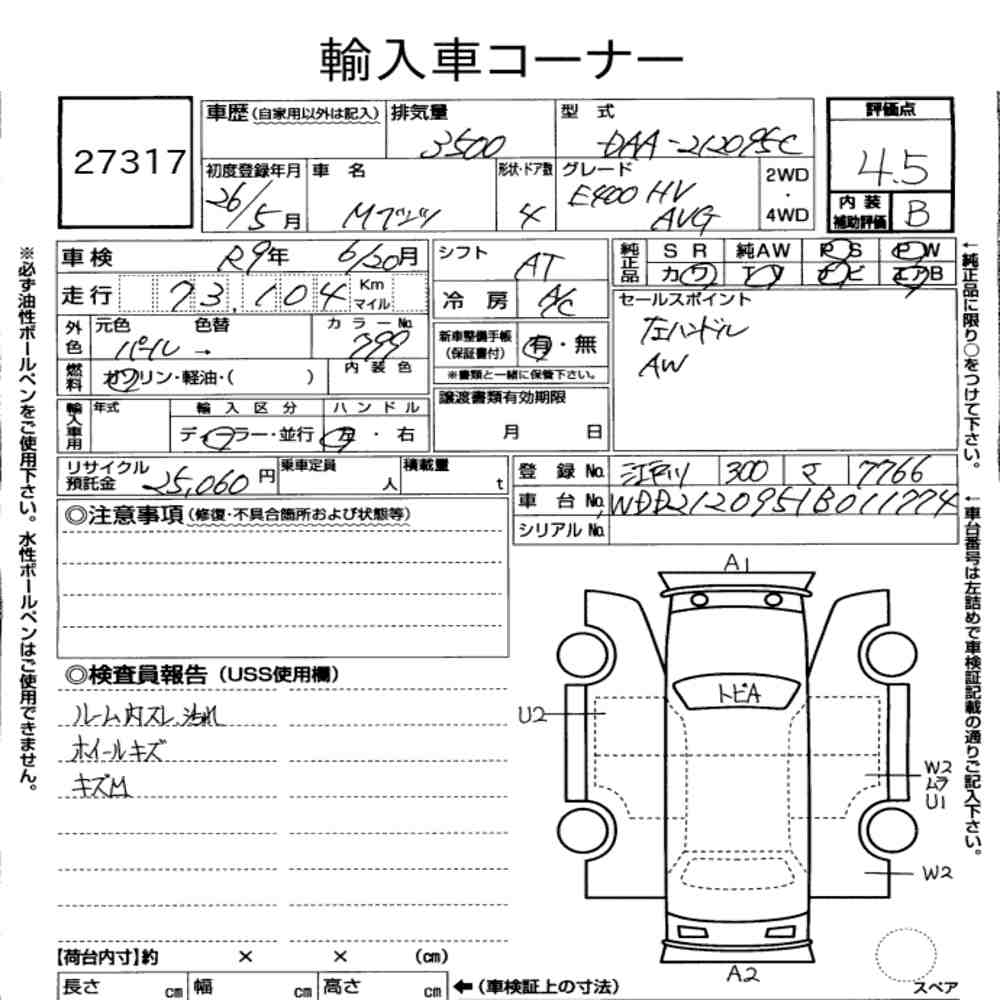 輸入車コーナー
27317
車歴(自家用以外は記入)
排気量
3500
型式
DAA-212095C
評価点
4.5
初度登録年月
26/5月
車名
Mベンツ
形状・ドア数
4
グレード
E400 HV
AVG
2WD
・
4WD
内装
補助評価
B
※必ず油性ボールペンをご使用下さい。水性ボールペンはご使用できません。
車検
R9年 6/20月
走行
73,104
Km
マイル
外色
元色
色替
パール →
カラーNo.
799
燃料
ガソリン・軽油・( )
内装色
輸入車用
年式
輸入区分
ディーラー・並行
ハンドル
左・右
シフト
AT
冷房
A/C
新車整備手帳
(保証書付)
有・無
※書類と一緒に保管下さい。
譲渡書類有効期限
月 日
純正品
SR
純AW
PS
PW
カワ
TV
ナビ
エアB
セールスポイント
左ハンドル
AW
←純正品に限り○をつけて下さい。
リサイクル
預託金
25,060円
乗車定員
人
積載量
t
登録No.
江戸川 300 マ 7766
車台No.
WDD2120951B011774
シリアルNo.
←車台番号は左詰めで車検証記載の通りご記入下さい。
◎注意事項(修復・不具合箇所および状態等)
◎検査員報告(USS使用欄)
ルーム内スレ、汚れ
ホイールキズ
キズM
A1
トビA
U2
W2
ムラ
U1
W2
A2
スペア
【荷台内寸】約 × × (cm)
長さ cm 幅 cm 高さ cm
←(車検証上の寸法)